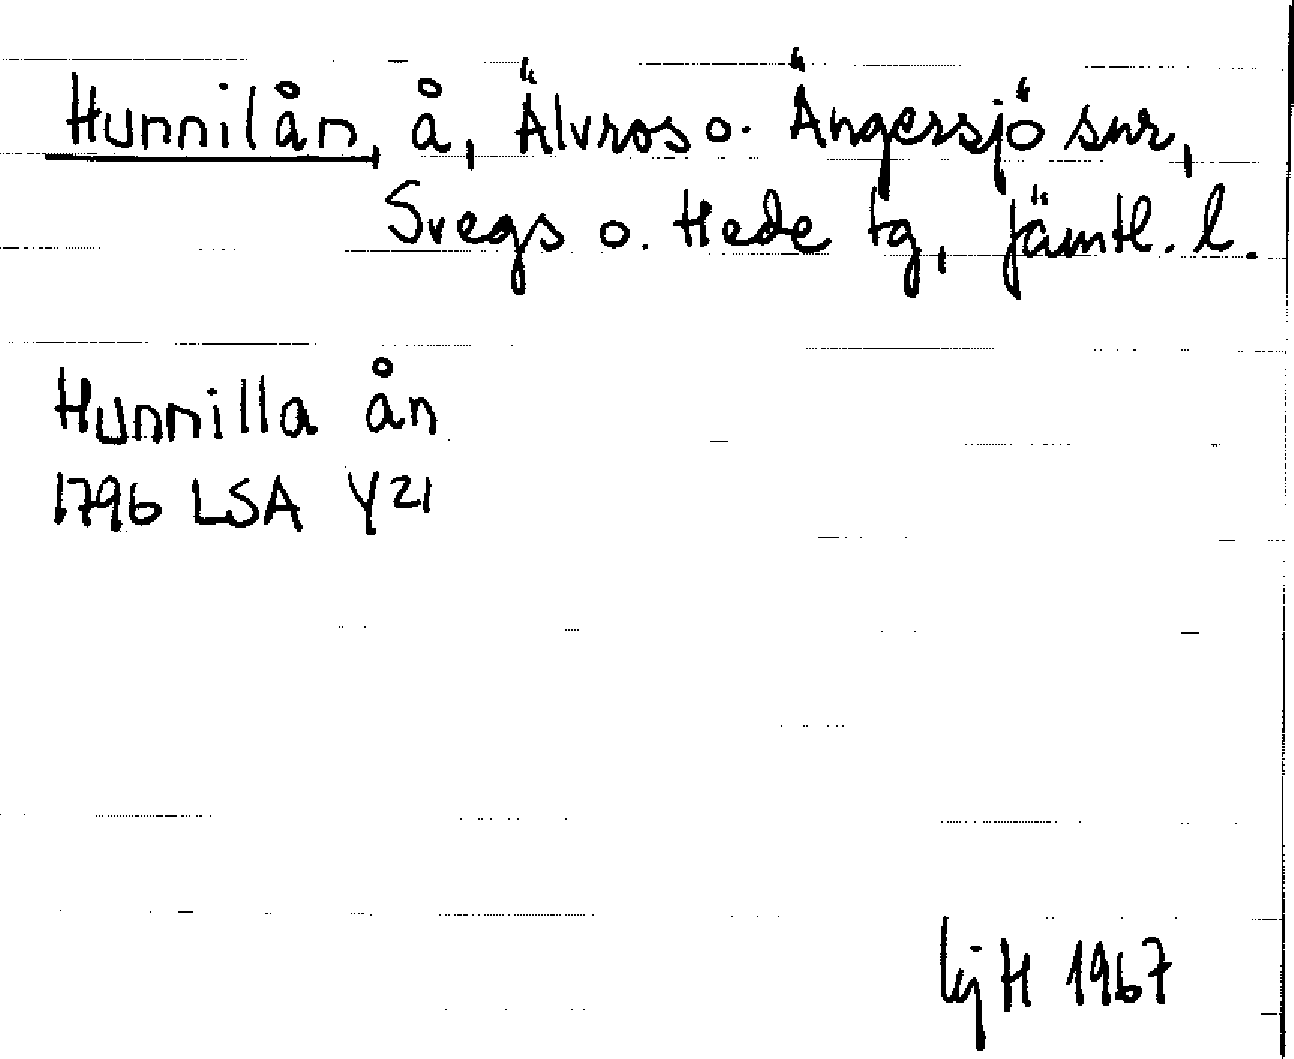 Hunnilån, å, Älvros o. Ängersjö snr,
Svegs o. Hede tg, Jämtl. l.
Hunnilla ån
1796 LSA Y21
H 1967